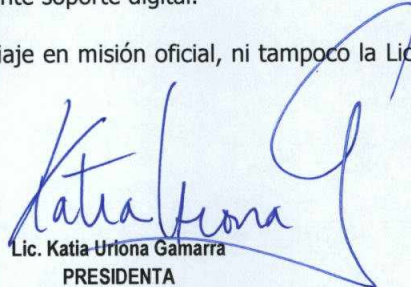 nte soporte digital.
iaje en misión oficial, ni tampoco la Lic
Katia Uriona G
Lic. Katia Uriona Gamarra
PRESIDENTA